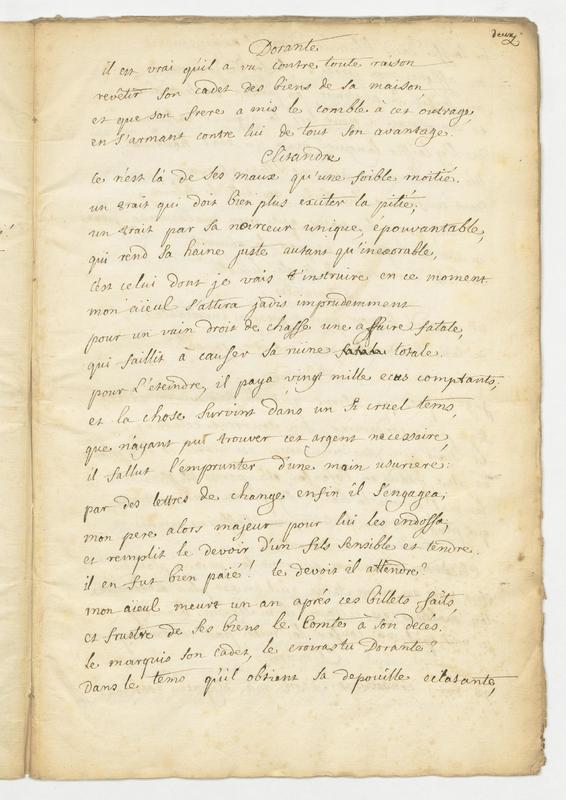 deux
Dorante
il est vrai qu'il a vu contre toute raison
revêtir son cadet des biens de sa maison,
et que son frere a mis le comble à cet outrage,
en s'armant contre lui de tout son avantage.
Clitandre
ce n'est là de ses maux qu'une foible moitié.
un trait qui doit bien plus exciter la pitié,
un trait par sa noirceur unique, épouvantable,
qui rend sa haine juste autant qu'inexorable,
c'est celui dont je vais t'instruire en ce moment.
mon aïeul s'attira jadis imprudemment
pour un vain droit de chasse une affaire fatale,
qui faillit à causer sa ruine totale.
pour l'éteindre, il paya vingt mille ecus comptants,
et la chose survint dans un si cruel tems,
que n'ayant put trouver cet argent necessaire,
il fallut l'emprunter d'une main usuriere:
par des lettres de change enfin il s'engagea,
mon pere alors majeur pour lui les endossa,
et remplit le devoir d'un fils sensible et tendre.
il en fut bien païé! le devoit il attendre?
mon aïeul meurt un an aprés ces billets faits,
et frustre de ses biens le Comte à son decés.
le marquis son cadet, le croirastu Dorante?
Dans le tems qu'il obtient sa depouille eclatante,